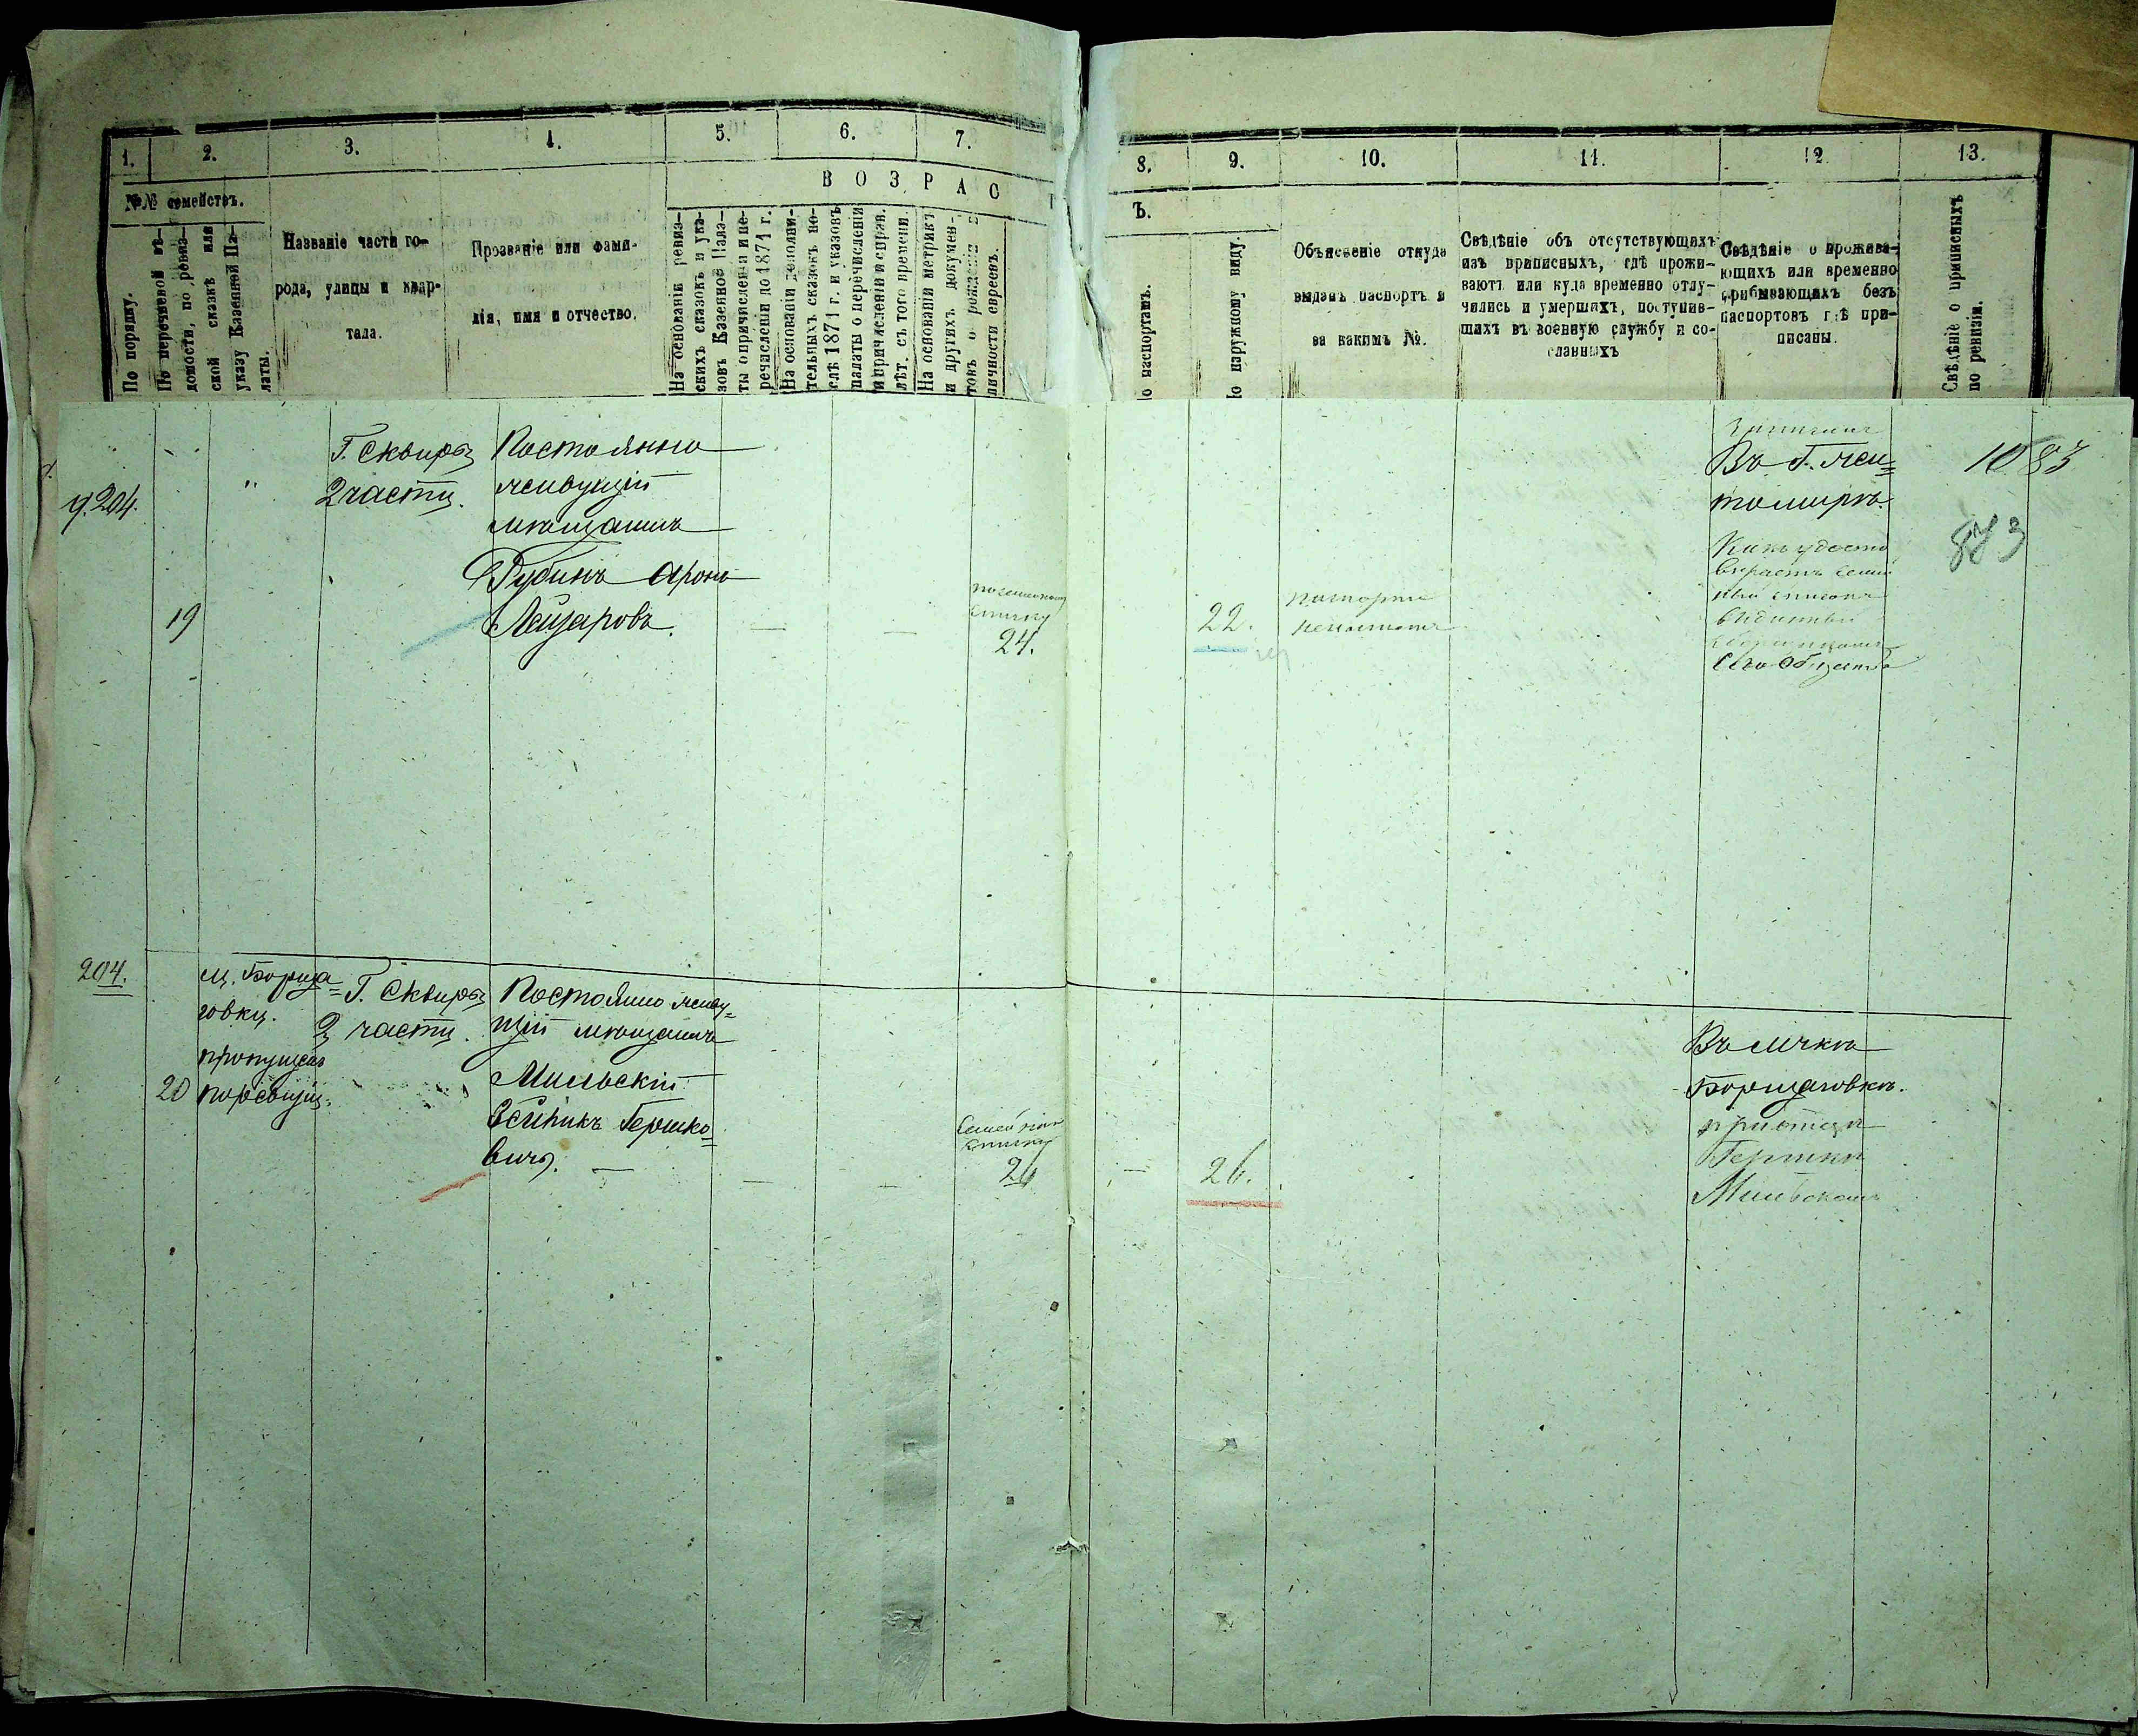 1.
2.
3.
4.
5.
6.
7.
8.
9.
10.
11.
12.
13.
№№ семействъ.
ВОЗРАС
Ъ.
По порядку.
По перечневой вѣ-
домости, по ревиз-
ской сказкѣ или
указу Казенной Па-
латы.
Названіе части го-
рода, улицы и квар-
тала.
Прозваніе или фами-
лія, имя и отчество.
На основаніи ревиз-
скихъ сказокъ и ука-
зовъ Казенной Пала-
ты о причисленіи и пе-
речисленіи до 1871 г.
На основаніи дополни-
тельныхъ сказокъ по-
слѣ 1871 г. и указовъ
палаты о перечисленіи
и причисленіи и справ.
лѣт. съ того времени.
На основаніи метрикъ
и другихъ докумен-
товъ о рожденіи и
личности евреевъ.
о паспортамъ.
о наружному виду.
Объясненіе откуда
выданъ паспортъ и
за какимъ №.
Свѣдѣніе объ отсутствующихъ
изъ приписныхъ, гдѣ прожи-
ваютъ или куда временно отлу-
чились и умершихъ, поступив-
шихъ въ военную службу и со-
сланныхъ
Свѣдѣніе о прожива-
ющихъ или временно
прибывающихъ безъ
паспортовъ гдѣ при-
писаны.
Свѣдѣніе о приписныхъ
по ревизіи.
204.
19
"
Г. Сквиры
2 части.
Постоянно
живущій
мѣщанинъ
Рубинъ Аронъ
Лейзаровъ.
—
—
по семейному
списку
24.
22.
паспорта
Въ Г. Жи=
томирѣ.
Какъ удосто
вѣряетъ семей
ный списокъ
выданный
Сего Общества
1083
873
204.
20
м. Борща=
говки.
Г. Сквиры
2 части.
Постоянно живу=
щій мѣщанинъ
Мильскій
Гершко=
вичъ. —
—
—
Семейному
списку
26
—
26.
Въ мѣчкѣ
Борщаговкѣ.
при отцѣ
Гершкѣ
Мильскомъ